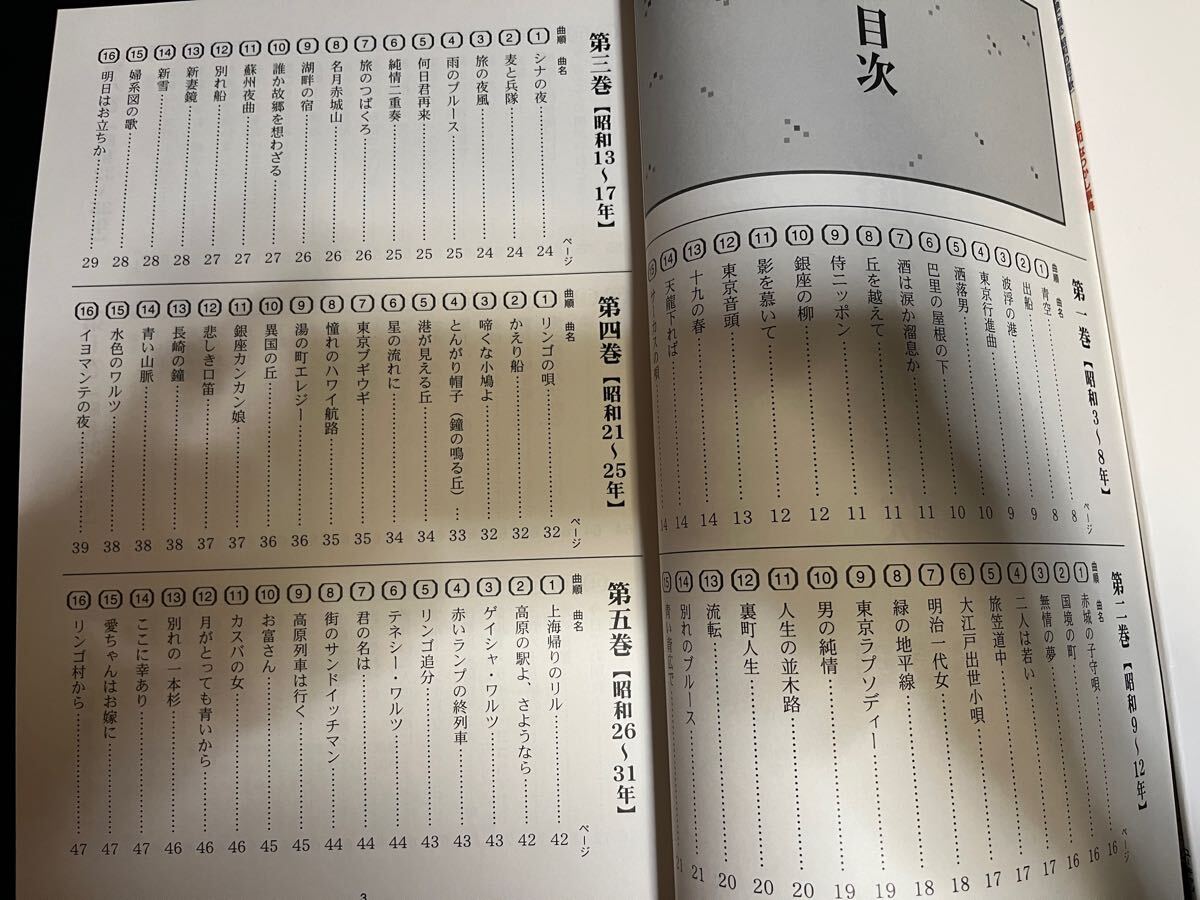 目次
第一巻【昭和3〜8年】
曲順 曲名 ページ
1 青空 8
2 出船 8
3 波浮の港 9
4 東京行進曲 9
5 洒落男 10
6 巴里の屋根の下 10
7 酒は涙か溜息か 11
8 丘を越えて 11
9 侍ニッポン 11
10 銀座の柳 12
11 影を慕いて 12
12 東京音頭 13
13 十九の春 14
14 天龍下れば 14
15 サーカスの唄 14
第二巻【昭和9〜12年】
曲順 曲名 ページ
1 赤城の子守唄 16
2 国境の町 16
3 無情の夢 16
4 二人は若い 17
5 旅笠道中 17
6 大江戸出世小唄 18
7 明治一代女 18
8 緑の地平線 19
9 東京ラプソディー 19
10 男の純情 20
11 人生の並木路 20
12 裏町人生 20
13 流転 21
14 別れのブルース 21
15 青い背広で 21
第三巻【昭和13〜17年】
曲順 曲名 ページ
1 シナの夜 24
2 麦と兵隊 24
3 旅の夜風 24
4 雨のブルース 25
5 何日君再来 25
6 純情二重奏 25
7 旅のつばくろ 26
8 名月赤城山 26
9 湖畔の宿 26
10 誰か故郷を想わざる 27
11 蘇州夜曲 27
12 別れ船 27
13 新妻鏡 28
14 新雪 28
15 婦系図の歌 28
16 明日はお立ちか 29
第四巻【昭和21〜25年】
曲順 曲名 ページ
1 リンゴの唄 32
2 かえり船 32
3 啼くな小鳩よ 32
4 とんがり帽子（鐘の鳴る丘） 33
5 港が見える丘 34
6 星の流れに 34
7 東京ブギウギ 35
8 憧れのハワイ航路 35
9 湯の町エレジー 36
10 異国の丘 36
11 銀座カンカン娘 37
12 悲しき口笛 37
13 長崎の鐘 38
14 青い山脈 38
15 水色のワルツ 38
16 イヨマンテの夜 39
第五巻【昭和26〜31年】
曲順 曲名 ページ
1 上海帰りのリル 42
2 高原の駅よ、さようなら 42
3 ゲイシャ・ワルツ 43
4 赤いランプの終列車 43
5 リンゴ追分 43
6 テネシー・ワルツ 44
7 君の名は 44
8 街のサンドイッチマン 44
9 高原列車は行く 45
10 お富さん 45
11 カスバの女 46
12 月がとっても青いから 46
13 別れの一本杉 46
14 ここに幸あり 47
15 愛ちゃんはお嫁に 47
16 リンゴ村から 47
3